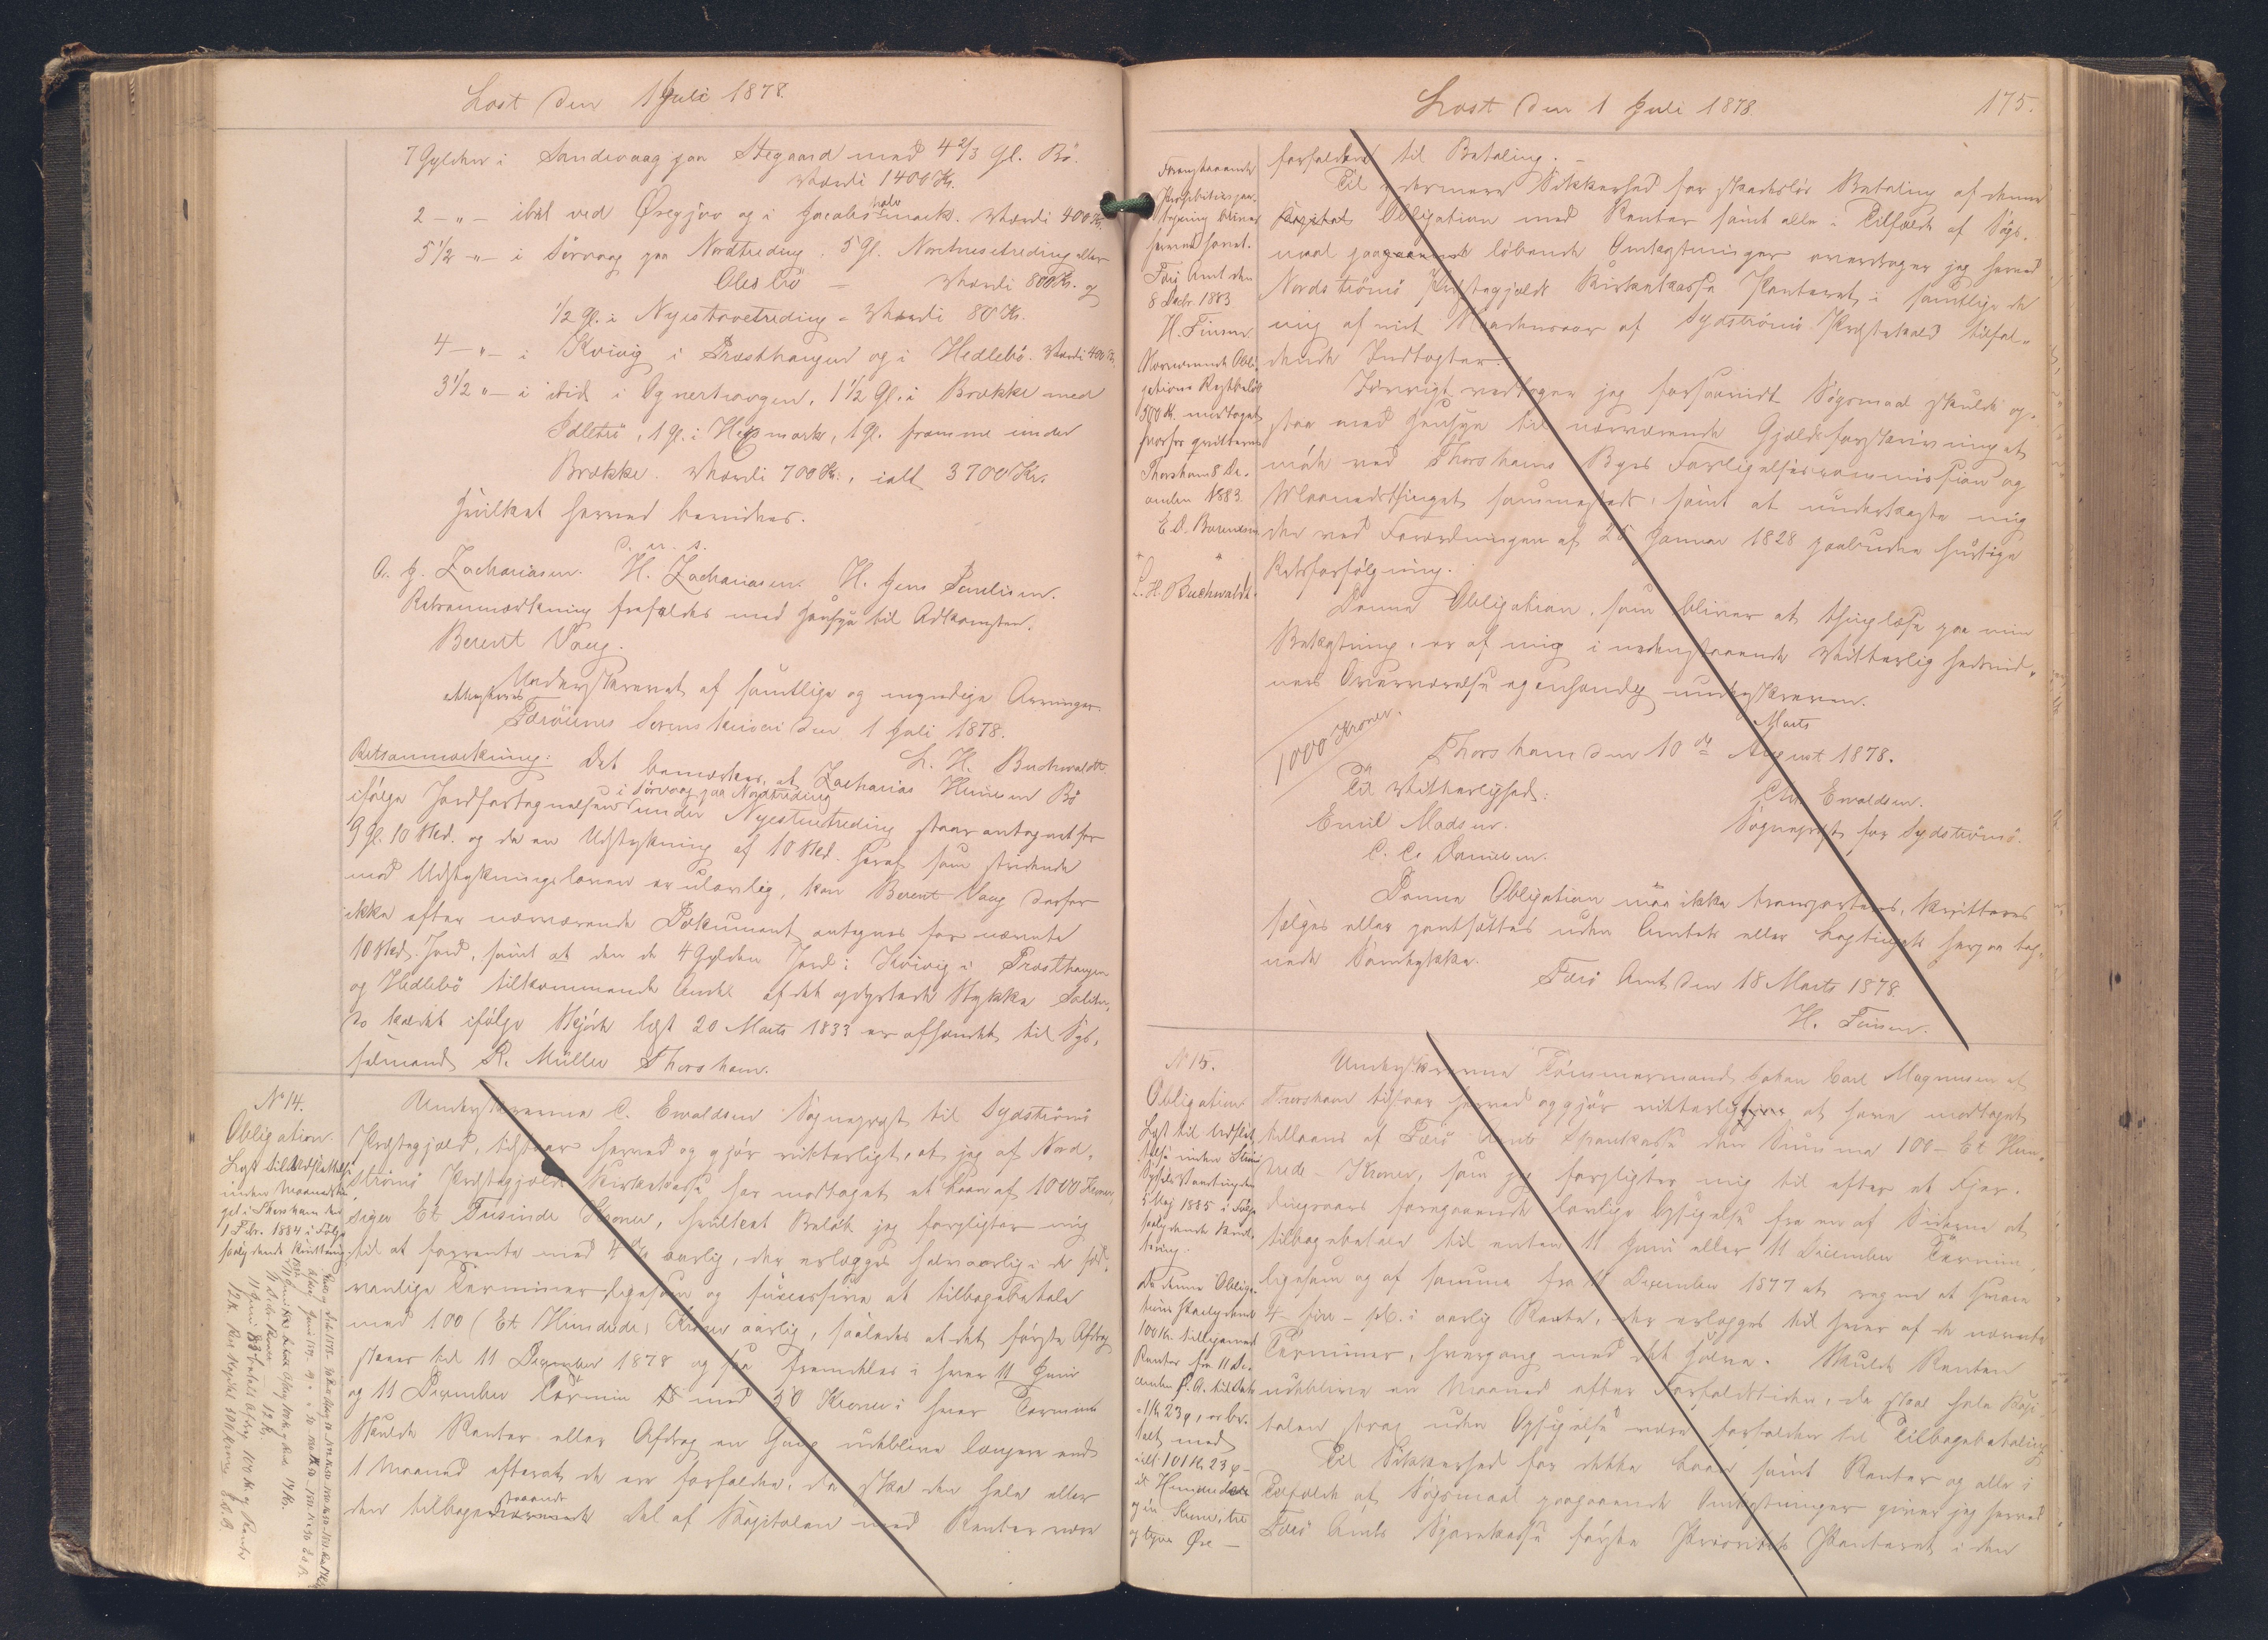 Læst den 1 Juli 1878.
7 Gylden i Sandevaag paa Stegaard med 4 2/3 Gl. Bø.
Værdi 1400 Kr.
2 - " - ibid ved Øregjov og i Jacobs halvmark. Værdi 400 Kr.
5 1/2 - " - i Sørvaag paa Nordtreding. 5 Gl. eller
Olesbø - Værdi 800 Kr. og
1/2 Gl. i Nyestovetreding - Værdi 80 Kr.
4 - " - i Kvivig i Præsthaugen og i Hedlebø. Værdi 400 Kr.
3 1/2 " - i ibid i 1 1/2 Gl. i Brække med
1 Gl. i 1 Gl. framme under
Brække. Værdi 700 Kr., ialt 3700 Kr.
Hvilket herved bevidnes.
D. u. s.
O. J. Zachariasen. H. Zachariasen. H. Jens Paulisen.
Retsanmærkning frafaldes med Hensyn til Adkomsten.
Berent Vaag.
Underskrevet af samtlige og myndige Arvinger
attesteres
Færöernes Sorenskriveri den 1 Juli 1878.
L. H. Buchwaldt
Retsanmærkning: Det bemærkes, at Zacharias Hansen Bø
ifølge Jordfortegnelsen i Sørvaag paa Nordtreding under Nyestuetreding staar antegnet for
9 Gl. 10 Skd. og da en Udstykning af 10 Skd. heraf som stridende
mod Udstykningsloven er ulovlig, kan Berent Vaag derfor
ikke efter nærværende Dokument antegnes for nævnte
10 Skd. Jord, samt at den de 4 Gylden Jord i Kvivig i Præsthaugen
og Hedlebø tilkommende Andel af det opdyrkede Stykke
kaldet ifølge Skjøde læst 20 Marts 1833 er afhændet til Sys-
selmand R. Müller Thorshavn.
No 14.
Obligation.
Læst til Udslettelse
inden Maanedsthin-
get i Thorshavn den
1 Fbr. 1884 i Følge
paategnede Kvittering
Underskrevne C. Evaldsen Sognepræst til Sydströmö
Præstegjæld, tilstaar herved og gjør vitterligt, at jeg af Nord-
strömö Præstegjælds Kirkekasse har modtaget et Laan af 1000 Kroner,
siger Et Tusinde Kroner, hvilket Beløb jeg forpligter mig
til at forrente med 4 % aarlig, der erlægges halvaarlig i de sæd-
vanlige Terminer, ligesom og successive at tilbagebetale
med 100 (Et Hundrede) Kroner aarlig, saaledes at det første Afdrag
skeer til 11 December 1878 og saa fremdeles i hver 11 Juni
og 11 December Termin med 50 Kroner i hver Termin
Skulde Renter eller Afdrag en Gang udeblive længere end
1 Maaned efterat de ere forfaldne, da skal den hele eller
den tilbagestaaende Del af Kapitalen med Renter være
11 Juni 83 betalt Afdrag 100 Kr og Renter
Læst den 1 Juli 1878.
175.
Foranstaaende
Prohibitivpaa-
tegning bliver
herved hævet.
Færö Amt den
8 Decbr. 1883
H. Finsen
Nærværende Obli-
gations Restbeløb
500 Kr. modtaget
hvorfor qvitteres
Thorshavn 8 De-
cember 1883.
E. D. Bærentsen
L. H. Buchwaldt.
forfalden til Betaling. -
Til ydermere Sikkerhed for skadesløs Betaling af denne
Kapital Obligation med Renter samt alle i Tilfælde af Søgs-
maal paagaaende løbende Omkostninger overdrager jeg herved
Nordströmö Præstegjælds Kirkekasse Panteret i samtlige de
mig af mit Naadensaar af Sydströmö Præstekald tilfal-
dende Indtægter.
Iøvrigt vedtager jeg forsaavidt Søgsmaal skulde op-
staa med Hensyn til nærværende Gjældsforskrivning at
møde ved Thorshavns Byes Forligelsescommission og
Maanedsthinget sammesteds, samt at underkaste mig
den ved Forordningen af 25 Januar 1828 paabudne hurtige
Retsforfølgning.
Denne Obligation, som bliver at thinglæse paa min
Bekostning, er af mig i nedenstaaende Vitterlighedsvid-
ners Overværelse egenhændig underskreven.
1000 Kroner.
Marts
Thorshavn den 10de August 1878.
Til Vitterlighed:
Chr. Evaldsen.
Emil Madsen.
Sognepræst for Sydströmö.
C. C. Danielsen.
Denne Obligation maa ikke transporteres, kvitteres
sælges eller pantsættes uden Amtets eller Lagtingets herpaa teg-
nede Samtykke.
Færö Amt den 18 Marts 1878.
H. Finsen.
No 15.
Obligation
Læst til Udslet-
telse inden Strömö
Syssels Vaarting den
5 Maj 1885 i Følge
paategnede Kvit-
tering.
Da denne Obliga-
tions Paalydende
100 Kr. tilligemed
Renter fra 11 De-
cember f. A. til Dato
1 Kr 23 ø, er be-
talt med
ialt 101 Kr 23 ø -
et Hundrede
og en Krone, tre
og tyve Øre -
Underskrevne Tömmermand Johan Carl Magnusen af
Thorshavn tilstaar herved og gjør vitterligt at have modtaget
tillaans af Færö Amts Sparekasse den Summa 100 - Et Hun-
drede - Kroner, som jeg forpligter mig til efter et Fjer-
dingaars foregaaende lovlige Opsigelse fra en af Siderne at
tilbagebetale til enten 11 Juni eller 11 December Termin,
ligesom og af samme fra 11 December 1877 at regne at svare
4 - fire - pCt. i aarlig Rente, der erlægges til hver af de nævnte
Terminer, hvergang med det halve. Skulde Renten
udeblive en Maaned efter Forfaldstiden, da skal hele Kapi-
talen strax uden Opsigelse være forfalden til Tilbagebetaling
Til Sikkerhed for dette Laan samt Renter og alle i
Tilfælde af Søgsmaal paagaaende Omkostninger giver jeg herved
Færö Amts Sparekasse første Prioritets Panteret i den